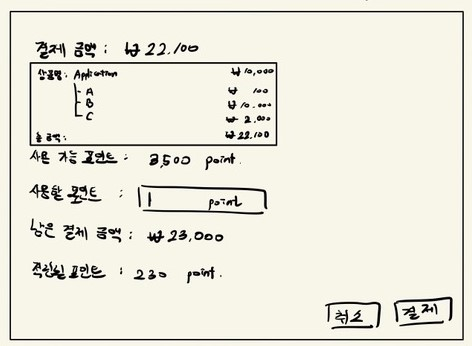 결제 금액 : ₩ 22.100
상품명 : Application ₩ 10,000
A ₩ 100
B ₩ 10.000
C ₩ 2.000
총 금액 : ₩ 22.100
사용 가능 포인트 : 3,500 point.
사용할 포인트 : point
남은 결제 금액 : ₩ 23,000
적립될 포인트 : 230 point.
취소 결제